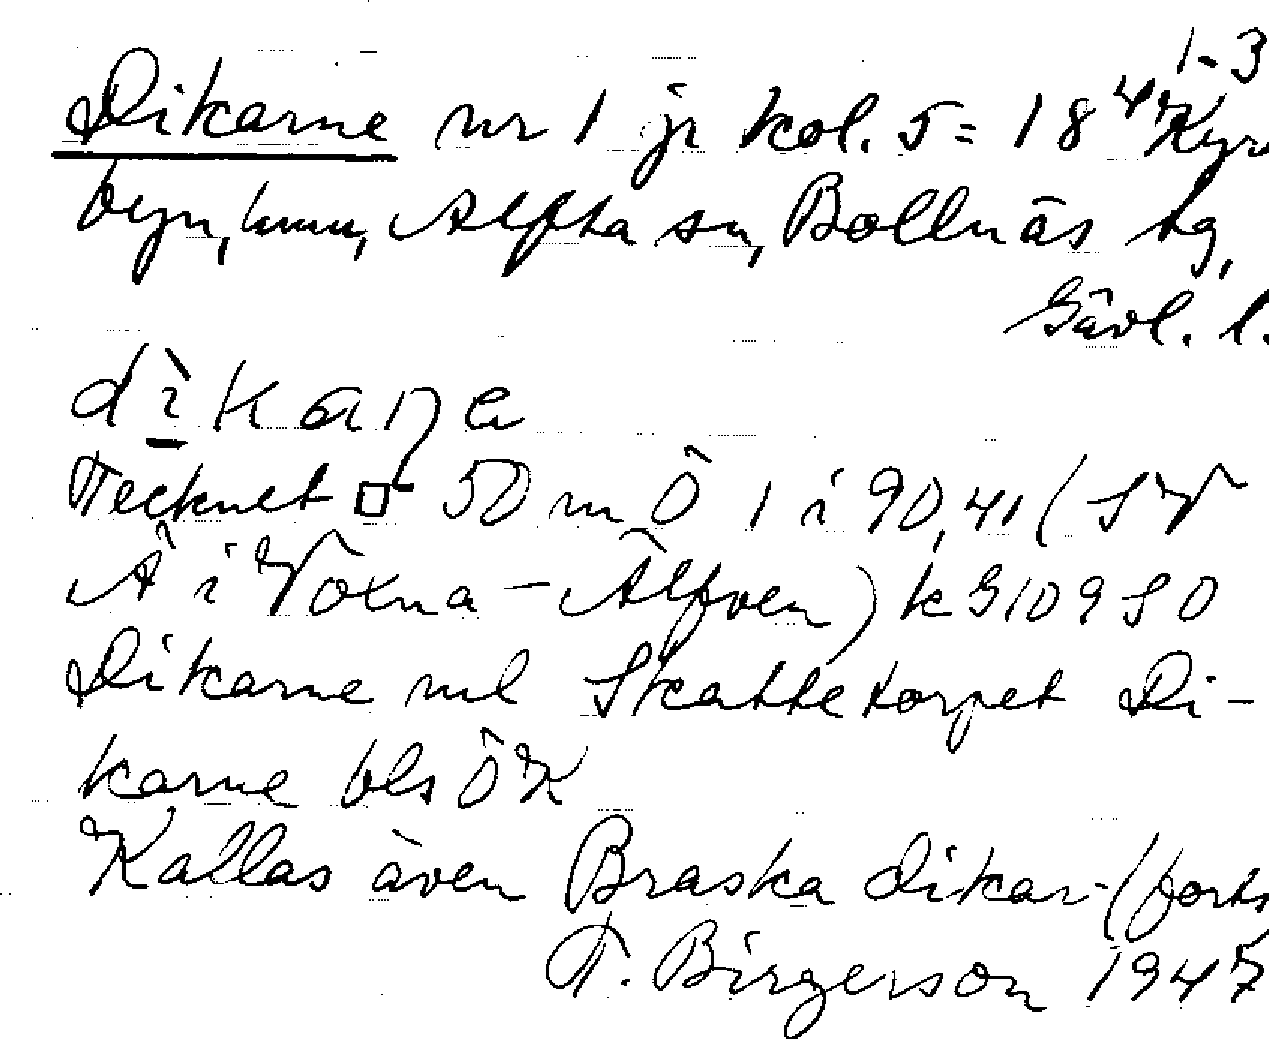 1-3
Dikarne nr 1 jr kol. 5 = 18 4 Kyr
byn, hmn, Alfta sn, Bollnäs tg,
Gävl. l.
dìkaṇe
Tecknet □ 50 m Ö 1 i 90,41 (SV
Å i Voxna-Älfven) k G10980
Dikarne ml Skattetorpet Di-
karne bls ÖK
Kallas även Braska dikar- (forts
T. Birgerson 1947